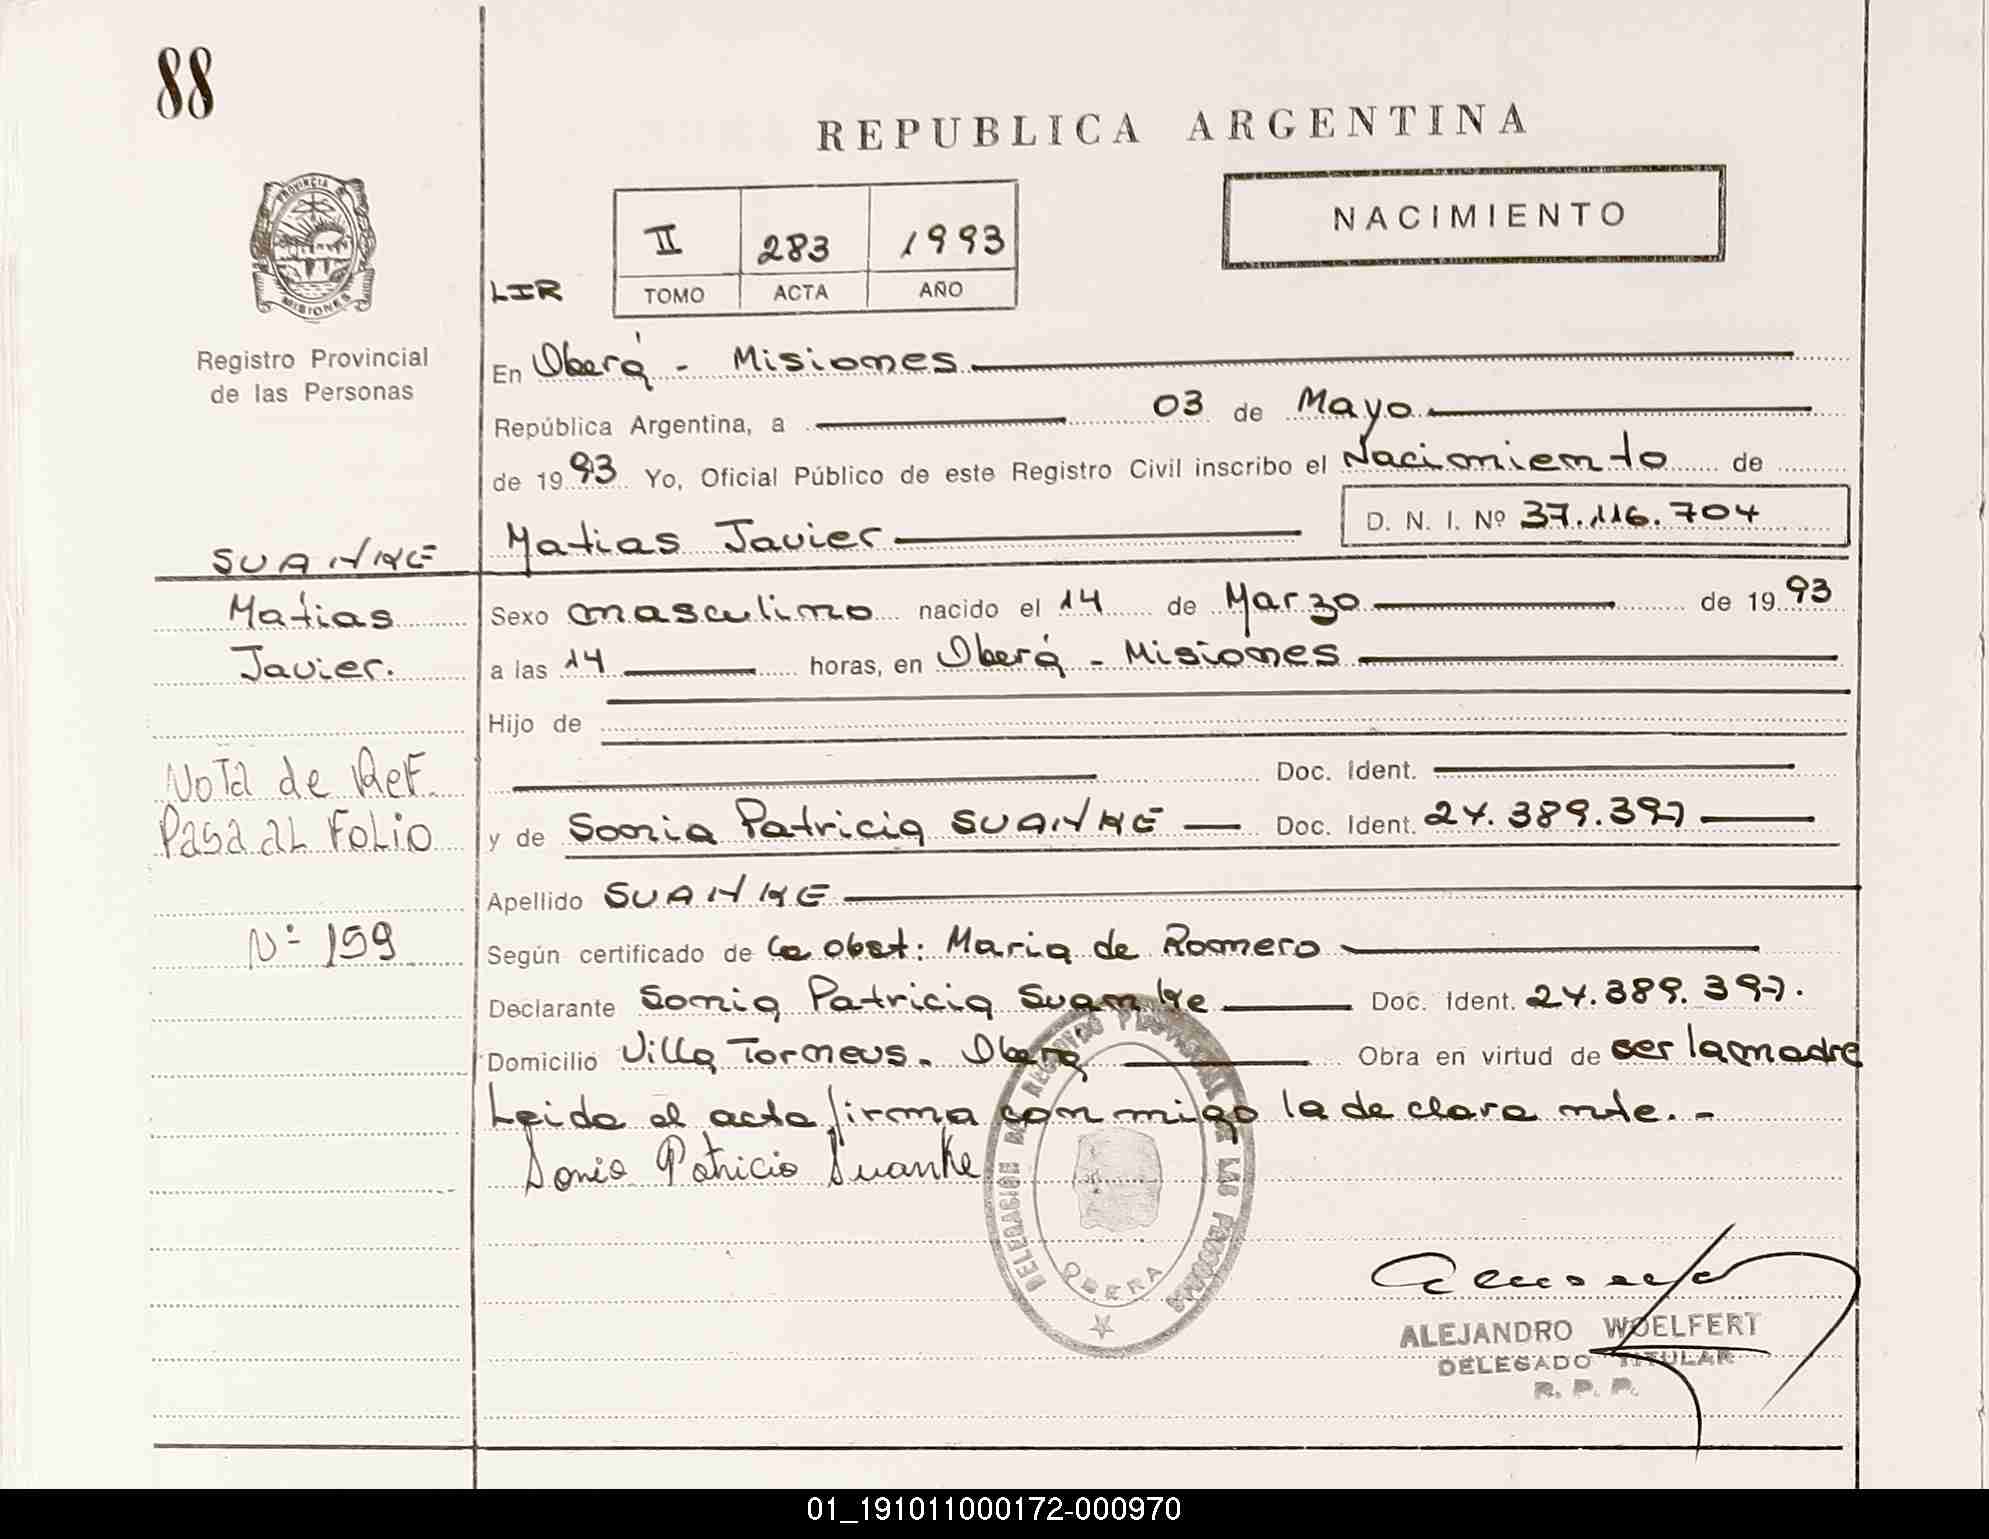 88
REPUBLICA ARGENTINA
PROVINCIA
MISIONES
Registro Provincial
de las Personas
NACIMIENTO
II 283 1993
TOMO ACTA AÑO
LIR
En Oberá - Misiones
República Argentina, a 03 de Mayo
de 1993 Yo, Oficial Público de este Registro Civil inscribo el Nacimiento de
Matias Javier D. N. I. Nº 37.116.704
SUANKE
Matias
Javier.
Sexo masculino nacido el 14 de Marzo de 1993
a las 14 horas, en Oberá - Misiones
Hijo de
Doc. Ident.
Nota de Ref.
Pasa al Folio
Nº 159
y de Sonia Patricia SUANKE Doc. Ident. 24.389.397
Apellido SUANKE
Según certificado de la obst: Maria de Romero
Declarante Sonia Patricia Suanke Doc. Ident. 24.389.397.
Domicilio Villa Torneus - Oberá Obra en virtud de ser la madre
Leida el acta firma conmigo la declarante.-
Sonia Patricia Suanke
DELEGACION DEL REGISTRO PROVINCIAL DE LAS PERSONAS
OBERA
ALEJANDRO WOELFERT
DELEGADO TITULAR
R. P. P.
01_191011000172-000970